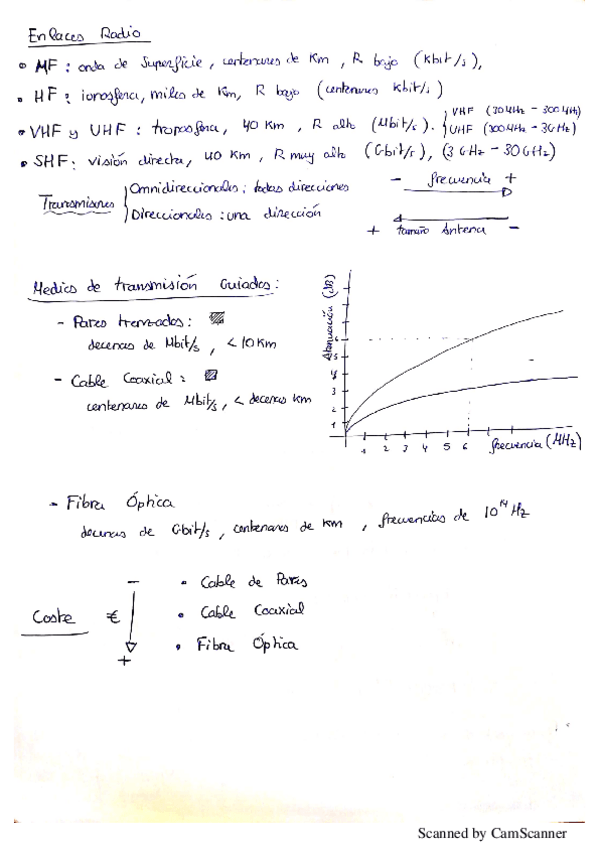 Enlaces Radio
• MF : onda de Superficie, centenares de Km, R bajo (Kbit/s),
• HF : ionosfera, miles de Km, R bajo (centenares Kbit/s)
• VHF y UHF : troposfera, 40 Km, R alto (Mbit/s). VHF (30MHz - 300MHz)
UHF (300MHz - 3GHz)
• SHF: visión directa, 40 Km, R muy alto (Gbit/s), (3GHz - 30GHz)
Transmisiones Omnidireccionales: todas direcciones
Direccionales: una dirección
- frecuencia +
+ tamaño Antena -
Medios de transmisión Guiados:
- Pares trenzados:
decenas de Mbit/s, < 10 Km
- Cable Coaxial:
centenares de Mbit/s, < decenas Km
Atenuación (dB)
6
5
4
3
2
1
1 2 3 4 5 6 frecuencia (MHz)
- Fibra Óptica
decenas de Gbit/s, centenares de Km, frecuencias de 10¹⁴ Hz
Coste € - +
• Cable de Pares
• Cable Coaxial
• Fibra Óptica
Scanned by CamScanner